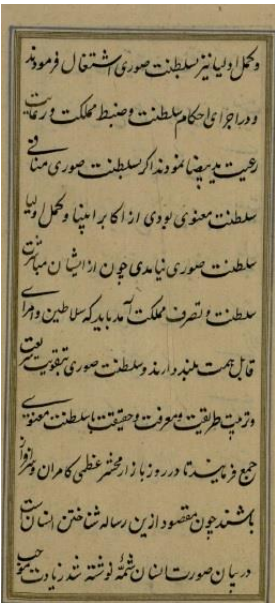 وکمل اولیا نیز بسلطنت صوری اشتغال فرمودند
و در اجرای احکام سلطنت و ضبط مملکت و رعایت
رعیت ید بیضا نمودند اگر سلطنت صوری منافی
سلطنت معنوی بودی از اکابر انبیا و کمل اولیا
سلطنت صوری نیامدی چون از ایشان مباشرت
سلطنت و تصرف مملکت آمد باید که سلاطین و امرای
قابل همت بلند دارند و سلطنت صوری بتقویت شریعت
و تربیت طریقت و معرفت و حقیقت با سلطنت معنوی
جمع فرمایند تا در روز بازار محشر عظمی کامران و سرافراز
باشند چون مقصود ازین رساله شناختن انسانست
در بیان صورت انسان شمّهٔ نوشته شد زیادت موجب